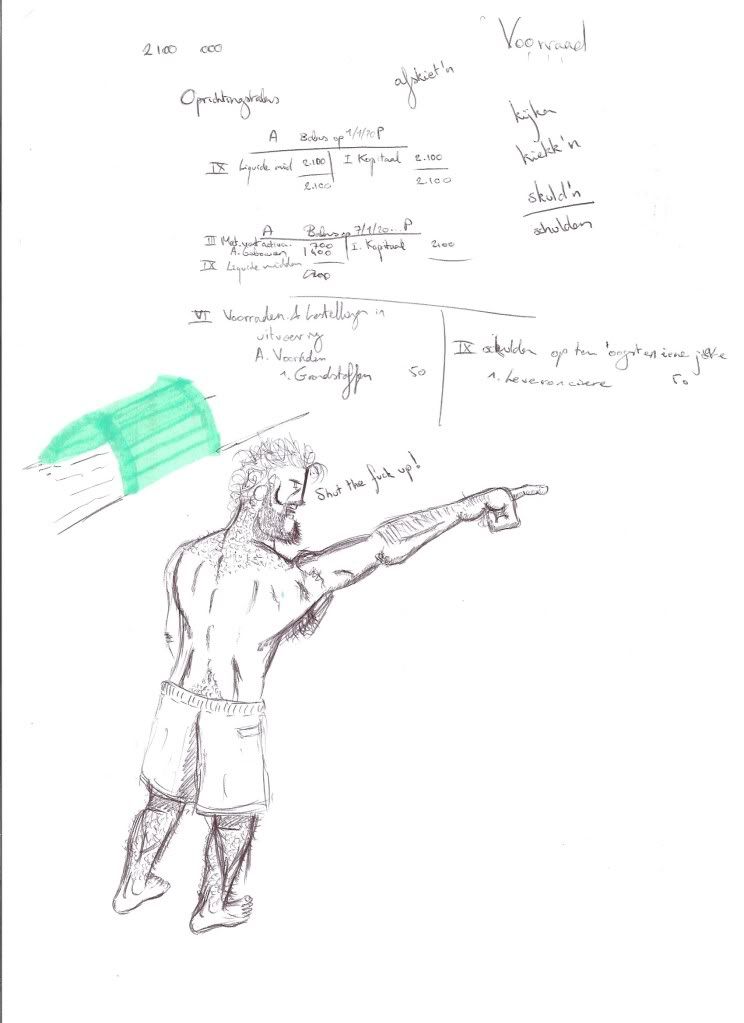 2100 000
Voorraad
afskiet'n
Oprichtingsbalans
kijken
kiekk'n
skuld'n
schulden
A Balans op 1/1/20 P
IX Liquide mid 2.100 I. Kapitaal 2.100
2.100 2.100
A Balans op 7/1/20.. P
III Mat. vast activa 700 I. Kapitaal 2100
A. Gebouwen 1400
IX Liquide middelen
VI Voorraden & bestellingen in
uitvoering
A. Voorraden
1. Grondstoffen 50
IX schulden op ten
1. Leveranciers 50
Shut the fuck up!